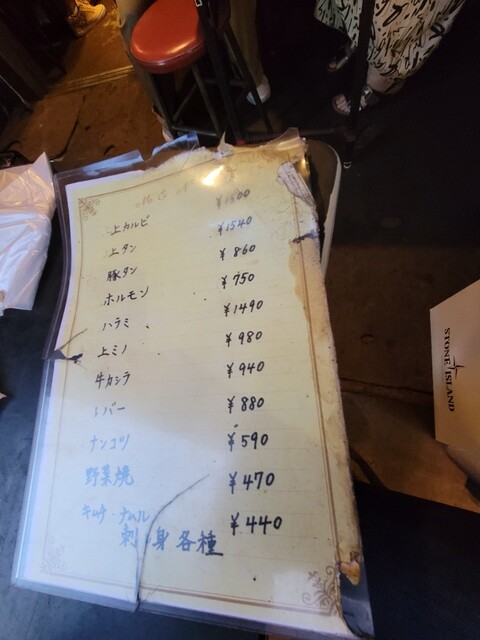 上カルビ ¥1500
上タン ¥1540
豚タン ¥860
ホルモン ¥750
ハラミ ¥1490
上ミノ ¥980
牛カシラ ¥940
レバー ¥880
ナンコツ ¥590
野菜焼 ¥470
キムチ・ナムル ¥440
刺身各種
STONE ISLAND